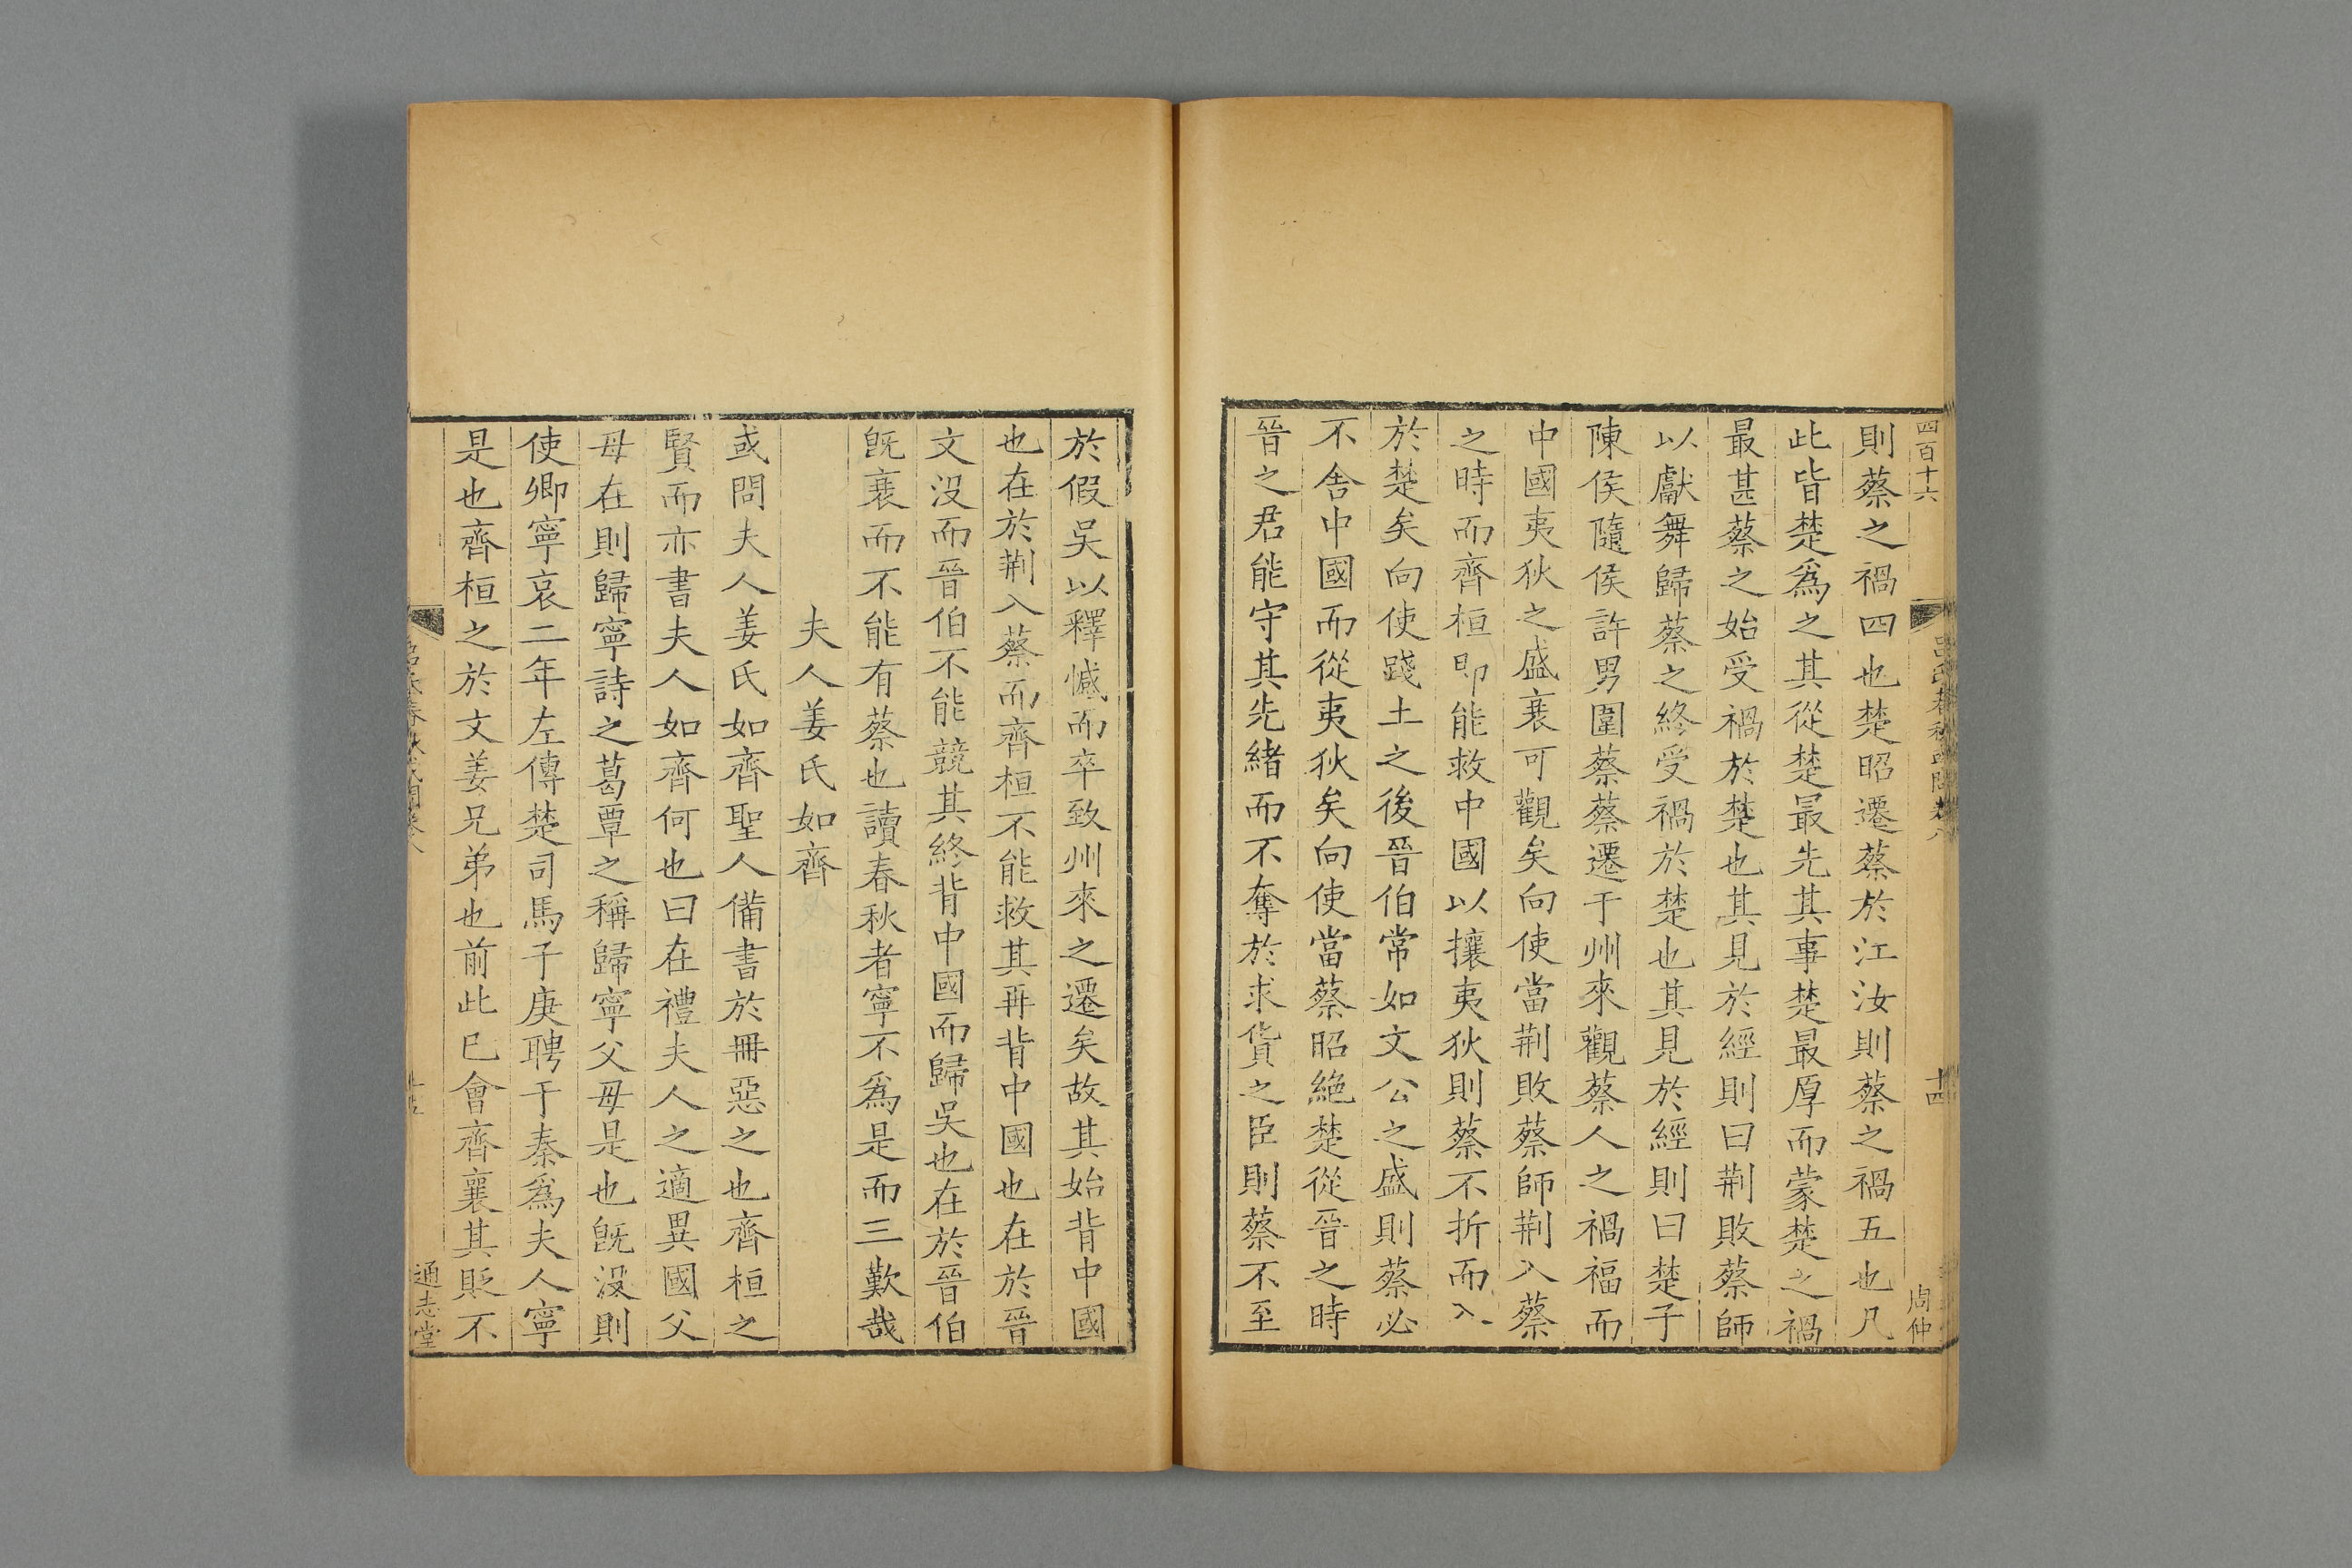 四百十六
呂氏春秋或問卷八
十四
周仲
則蔡之禍四也楚昭遷蔡於江汝則蔡之禍五也凡
此皆楚爲之其從楚最先其事楚最厚而蒙楚之禍
最甚蔡之始受禍於楚也其見於經則曰荆敗蔡師
以獻舞歸蔡之終受禍於楚也其見於經則曰楚子
陳侯隨侯許男圍蔡蔡遷于州來觀蔡人之禍福而
中國夷狄之盛衰可觀矣向使當荆敗蔡師荆入蔡
之時而齊桓即能救中國以攘夷狄則蔡不折而入
於楚矣向使踐土之後晉伯常如文公之盛則蔡必
不舍中國而從夷狄矣向使當蔡昭絶楚從晉之時
晉之君能守其先緒而不奪於求貨之臣則蔡不至
於假吳以釋憾而卒致州來之遷矣故其始背中國
也在於荆入蔡而齊桓不能救其再背中國也在於晉
文沒而晉伯不能競其終背中國而歸吳也在於晉伯
旣衰而不能有蔡也讀春秋者寧不爲是而三歎哉
夫人姜氏如齊
或問夫人姜氏如齊聖人備書於冊惡之也齊桓之
賢而亦書夫人如齊何也曰在禮夫人之適異國父
母在則歸寧詩之葛覃之稱歸寧父母是也旣沒則
使卿寧哀二年左傳楚司馬子庚聘于秦爲夫人寧
是也齊桓之於文姜兄弟也前此已會齊襄其貶不
通志堂